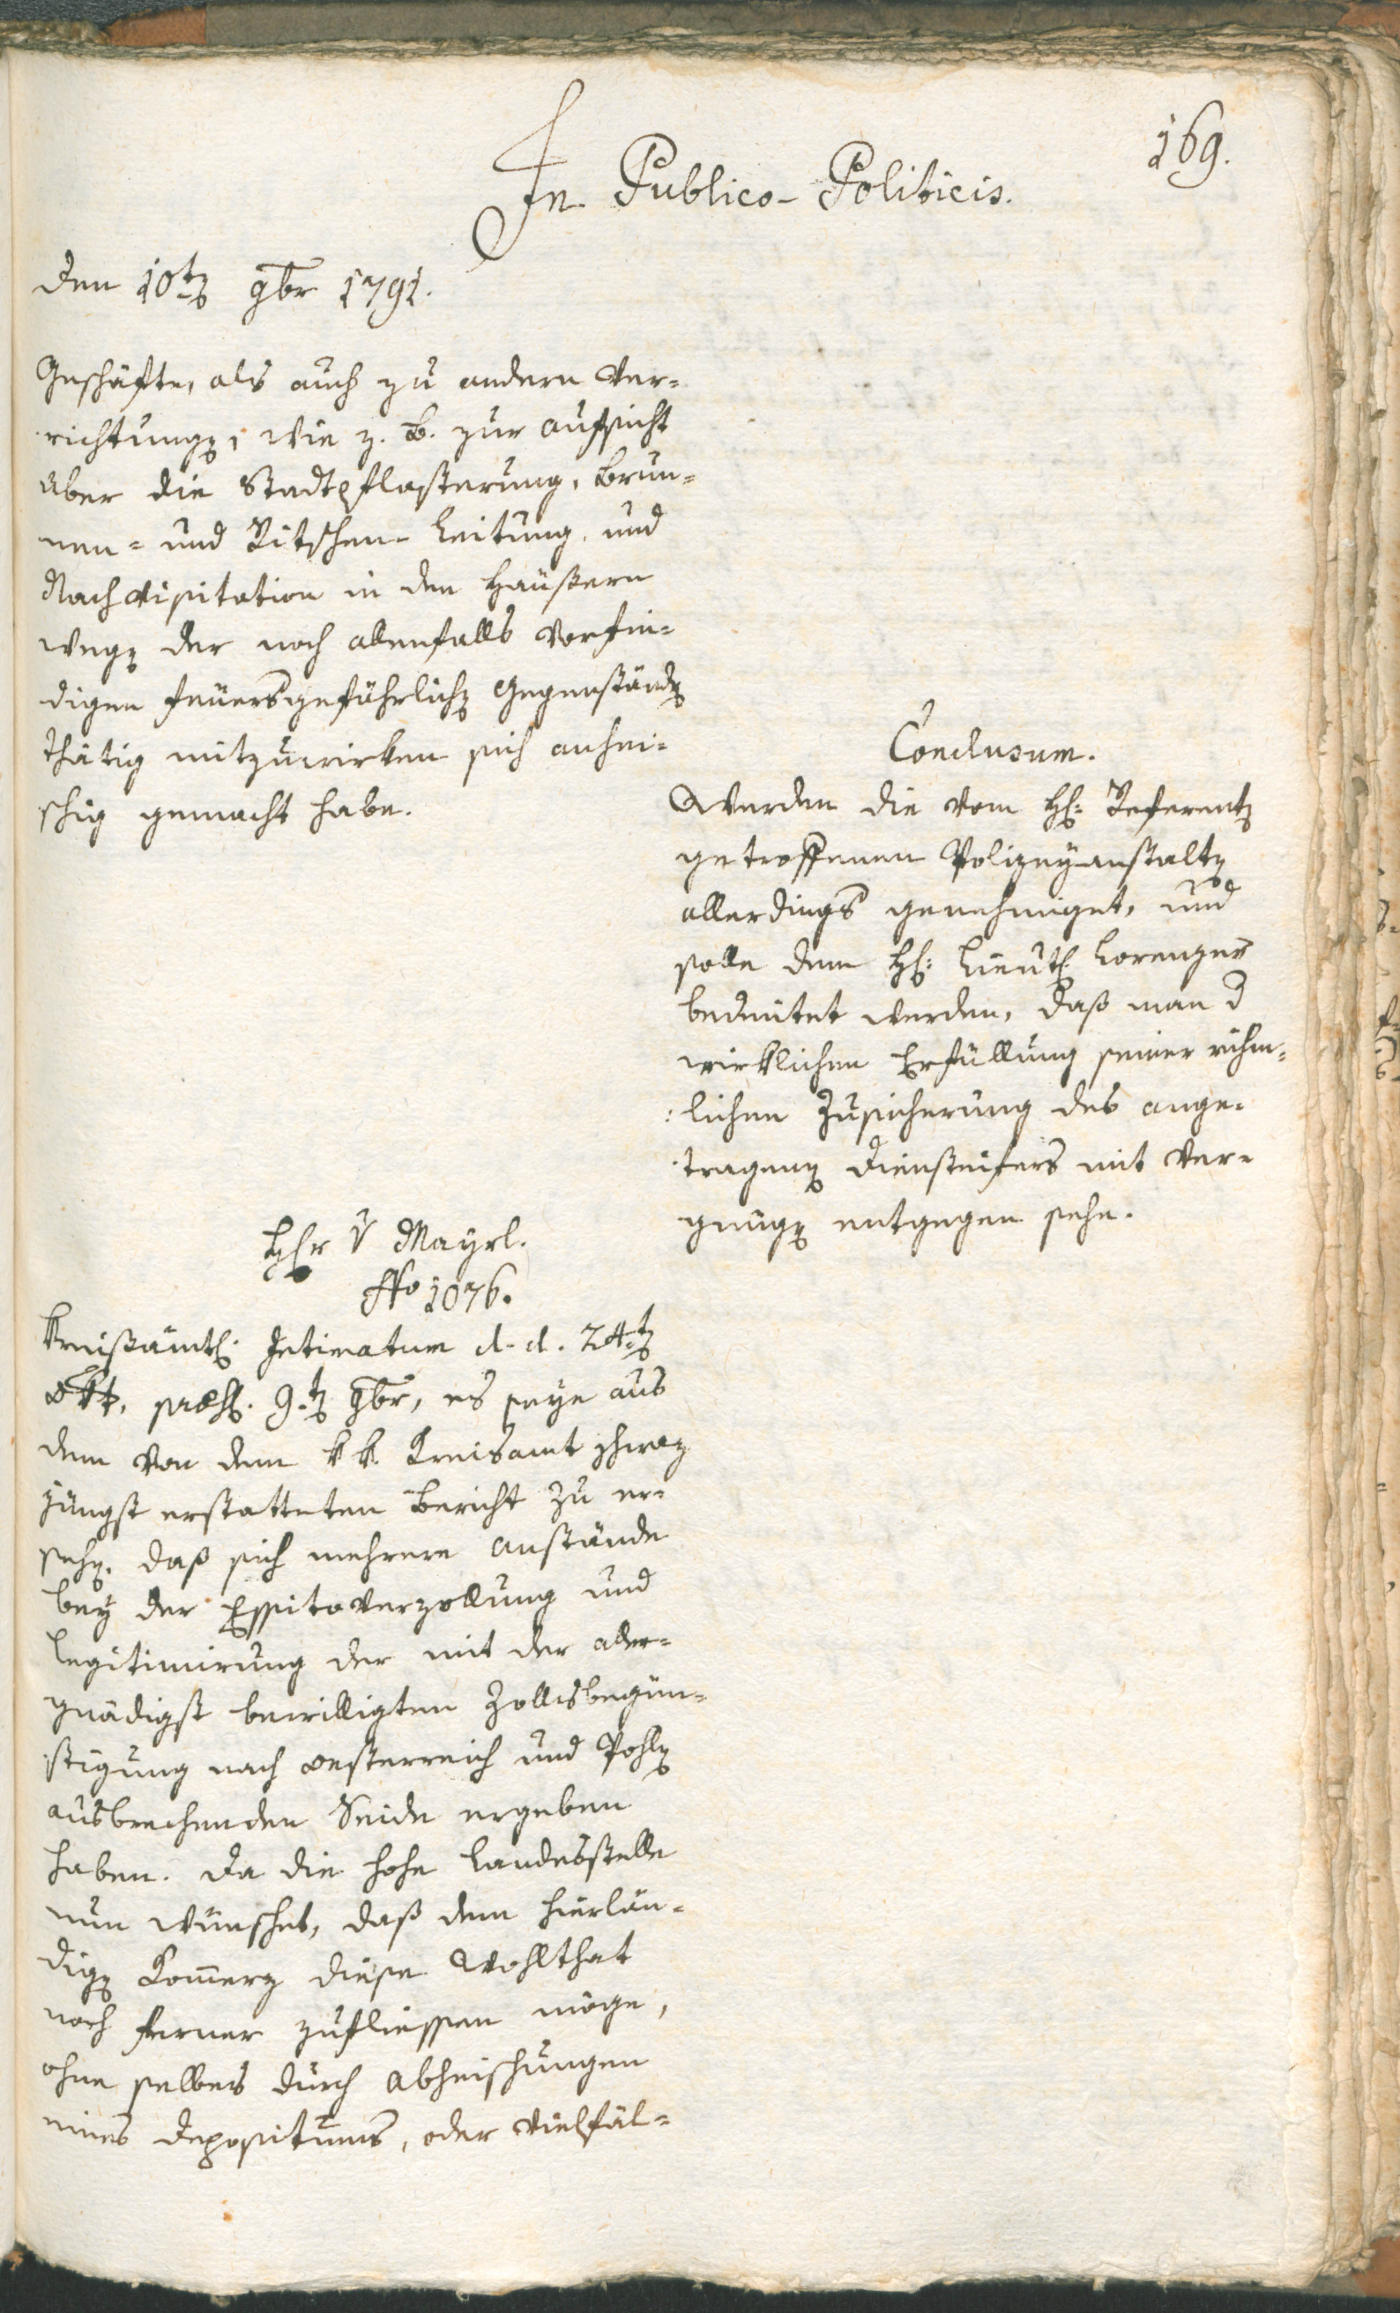 169.
In Publico-Politicis.
Den 10t 9br 1791.
Geschäfte, als auch zu andern Ver=
richtungen, wie z. B. zur Aufsicht
über die Stadtpflasterung, Brun=
nen= und Ritschen-Leitung, und
Nachvisitation in den Häußern
wegen der noch allenfalls vorfin=
digen feuersgefährlichen Gegenständen
thätig mitzuwirken sich anhei=
schig gemacht habe.
Conclusum.
Werden die vom H: Referenten
getroffenen Polizeyanstalten
allerdings genehmiget, und
solle dem H: Lieut: Lorenzer
bedeutet werden, daß man d
wirklichen Erfüllung seiner rühm=
lichen Zusicherung des ange=
tragenen Diensteifers mit Ver=
gnügen entgegen sehe.
Hr v Mayrl.
No 1076.
Kreißämtl: Intimatum d. d. 24t
Okt, præs. 9t 9br, es seye aus
dem von dem k k. Kreisamt Schwaz
jüngst erstatteten Bericht zu er=
sehen, daß sich mehrere Anstände
bey der Essitoverzollung und
Legitimirung der mit der aller=
gnädigst bewilligten Zollsbegün=
stigung nach Oesterreich und Pohlen
ausbrechenden Seide ergeben
haben. Da die hohe Landesstelle
nun wünschet, daß dem hierlän=
digen Commerz diese Wohlthat
noch ferner zufliessen möge,
ohne selbes durch Abheischungen
eines Depositums, oder Vielfäl=